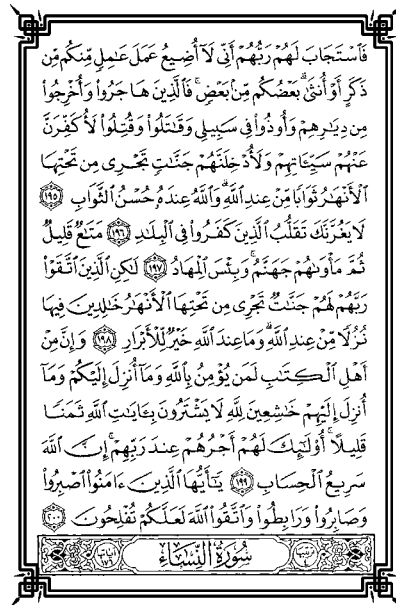 فَٱسْتَجَابَ لَهُمْ رَبُّهُمْ أَنِّي لَآ أُضِيعُ عَمَلَ عَٰمِلٍ مِّنكُم مِّن
ذَكَرٍ أَوْ أُنثَىٰ ۖ بَعْضُكُم مِّنۢ بَعْضٍ ۖ فَٱلَّذِينَ هَاجَرُوا۟ وَأُخْرِجُوا۟
مِن دِيَٰرِهِمْ وَأُوذُوا۟ فِي سَبِيلِي وَقَٰتَلُوا۟ وَقُتِلُوا۟ لَأُكَفِّرَنَّ
عَنْهُمْ سَيِّـَٔاتِهِمْ وَلَأُدْخِلَنَّهُمْ جَنَّٰتٍ تَجْرِي مِن تَحْتِهَا
ٱلْأَنْهَٰرُ ثَوَابًا مِّنْ عِندِ ٱللَّهِ ۗ وَٱللَّهُ عِندَهُۥ حُسْنُ ٱلثَّوَابِ ۝١٩٥
لَا يَغُرَّنَّكَ تَقَلُّبُ ٱلَّذِينَ كَفَرُوا۟ فِي ٱلْبِلَٰدِ ۝١٩٦ مَتَٰعٌ قَلِيلٌ
ثُمَّ مَأْوَىٰهُمْ جَهَنَّمُ ۚ وَبِئْسَ ٱلْمِهَادُ ۝١٩٧ لَٰكِنِ ٱلَّذِينَ ٱتَّقَوْا۟
رَبَّهُمْ لَهُمْ جَنَّٰتٌ تَجْرِي مِن تَحْتِهَا ٱلْأَنْهَٰرُ خَٰلِدِينَ فِيهَا
نُزُلًا مِّنْ عِندِ ٱللَّهِ ۗ وَمَا عِندَ ٱللَّهِ خَيْرٌ لِّلْأَبْرَارِ ۝١٩٨ وَإِنَّ مِنْ
أَهْلِ ٱلْكِتَٰبِ لَمَن يُؤْمِنُ بِٱللَّهِ وَمَآ أُنزِلَ إِلَيْكُمْ وَمَآ
أُنزِلَ إِلَيْهِمْ خَٰشِعِينَ لِلَّهِ لَا يَشْتَرُونَ بِـَٔايَٰتِ ٱللَّهِ ثَمَنًا
قَلِيلًا ۗ أُو۟لَٰٓئِكَ لَهُمْ أَجْرُهُمْ عِندَ رَبِّهِمْ ۗ إِنَّ ٱللَّهَ
سَرِيعُ ٱلْحِسَابِ ۝١٩٩ يَٰٓأَيُّهَا ٱلَّذِينَ ءَامَنُوا۟ ٱصْبِرُوا۟
وَصَابِرُوا۟ وَرَابِطُوا۟ وَٱتَّقُوا۟ ٱللَّهَ لَعَلَّكُمْ تُفْلِحُونَ ۝٢٠٠
ترتيبها ٤ سُورَةُ النِّسَاءِ آياتها ١٧٦